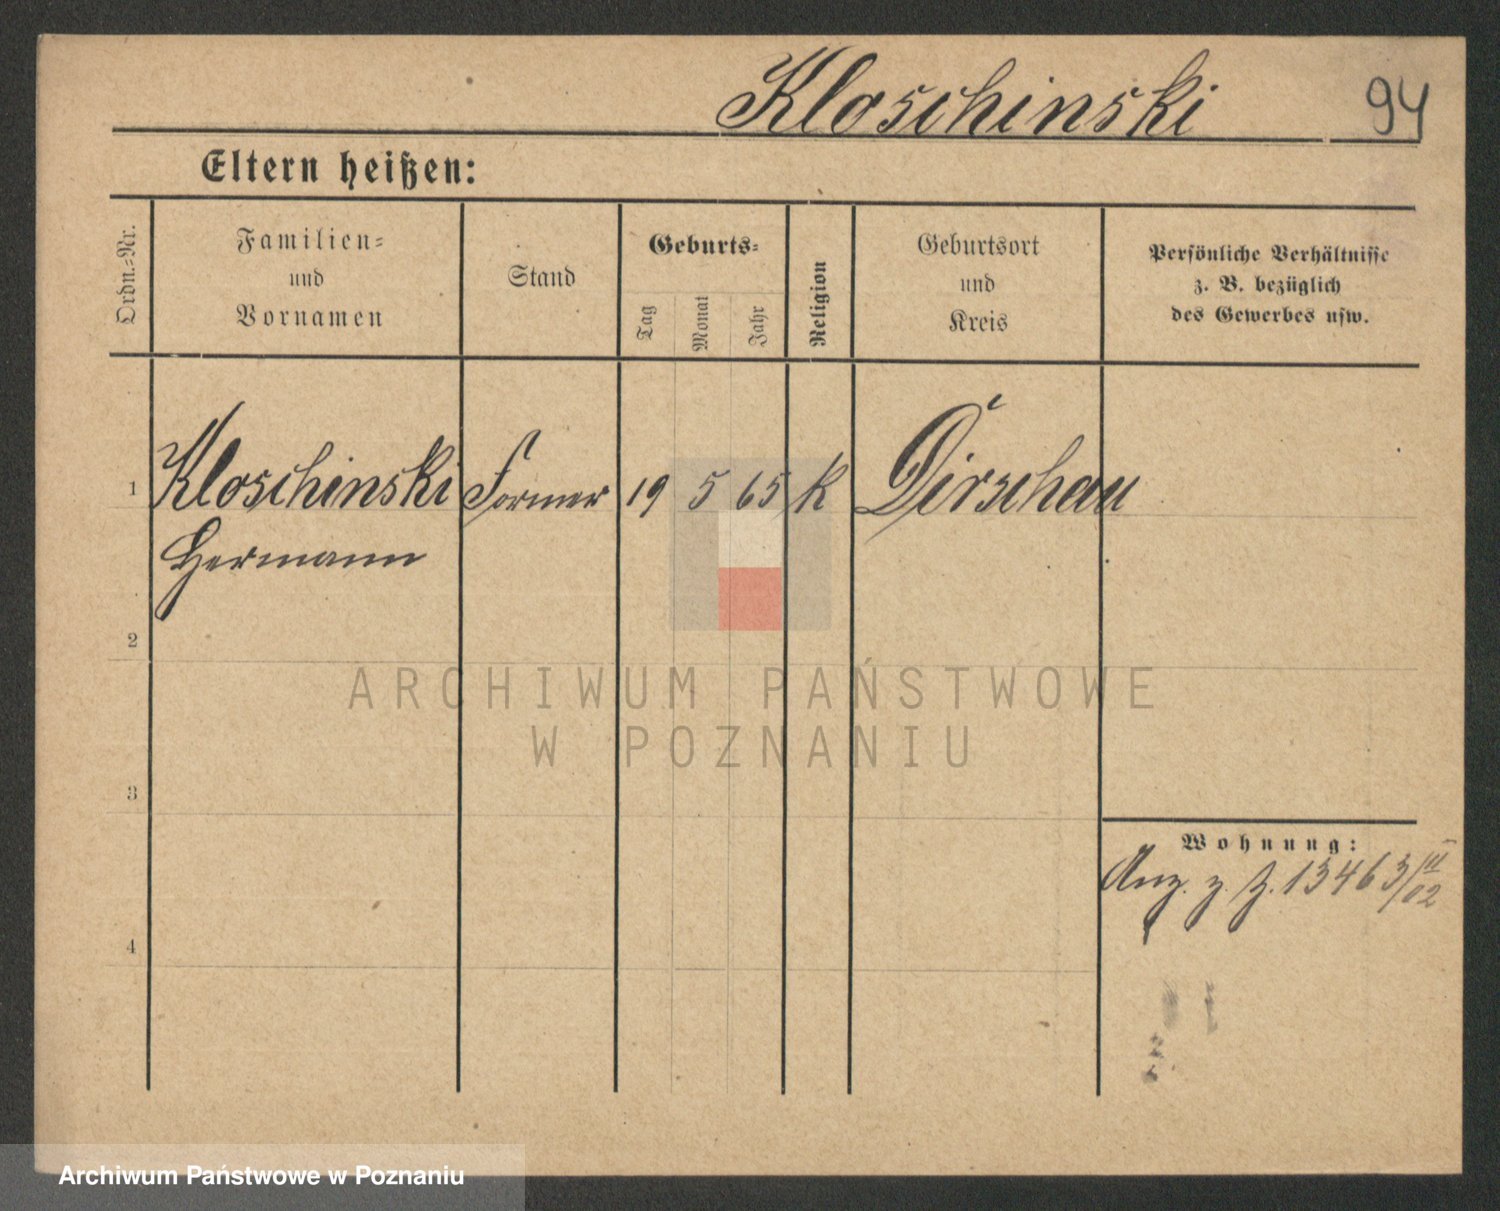 Kloschinski 94
Eltern heißen:
Ordn.-Nr.
Familien-
und
Vornamen
Stand
Geburts-
Tag
Monat
Jahr
Religion
Geburtsort
und
Kreis
Persönliche Verhältnisse
z. B. bezüglich
des Gewerbes usw.
1 Kloschinski Former 19 5 65 k Dirschau
Hermann
2
3
4
Wohnung:
Anz. z. Z. 13463/III 02
ARCHIWUM PAŃSTWOWE
W POZNANIU
Archiwum Państwowe w Poznaniu